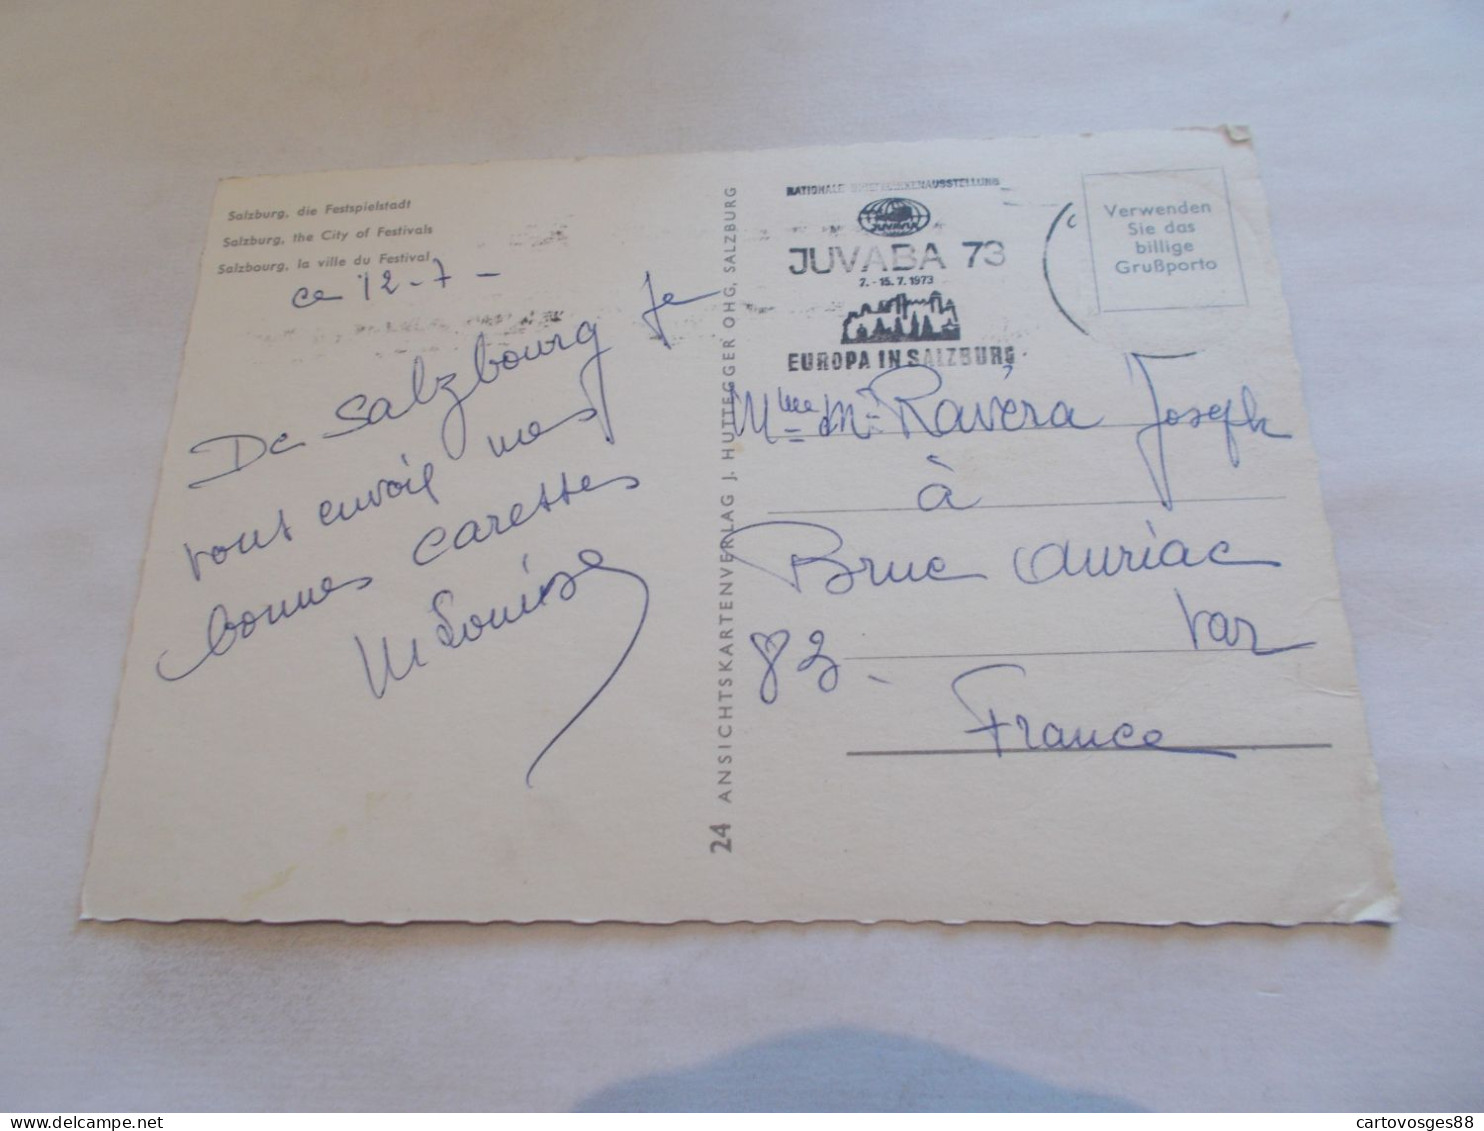 Salzburg, die Festspielstadt
Salzburg, the City of Festivals
Salzbourg, la ville du Festival
ce 12-7-
De Salzbourg Je
vous envoie mes
bonnes caresses
M Louise
24 ANSICHTSKARTENVERLAG J. HUTTEGGER OHG, SALZBURG
NATIONALE BRIEFMARKENAUSSTELLUNG
JUVAVA
JUVABA 73
7.-15.7.1973
EUROPA IN SALZBURG
Verwenden
Sie das
billige
Grußporto
Mme M- Ravéra Joseph
à
Brue Auriac
Var
83-
France
cartovosges88